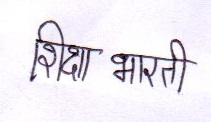 शिक्षा भारती